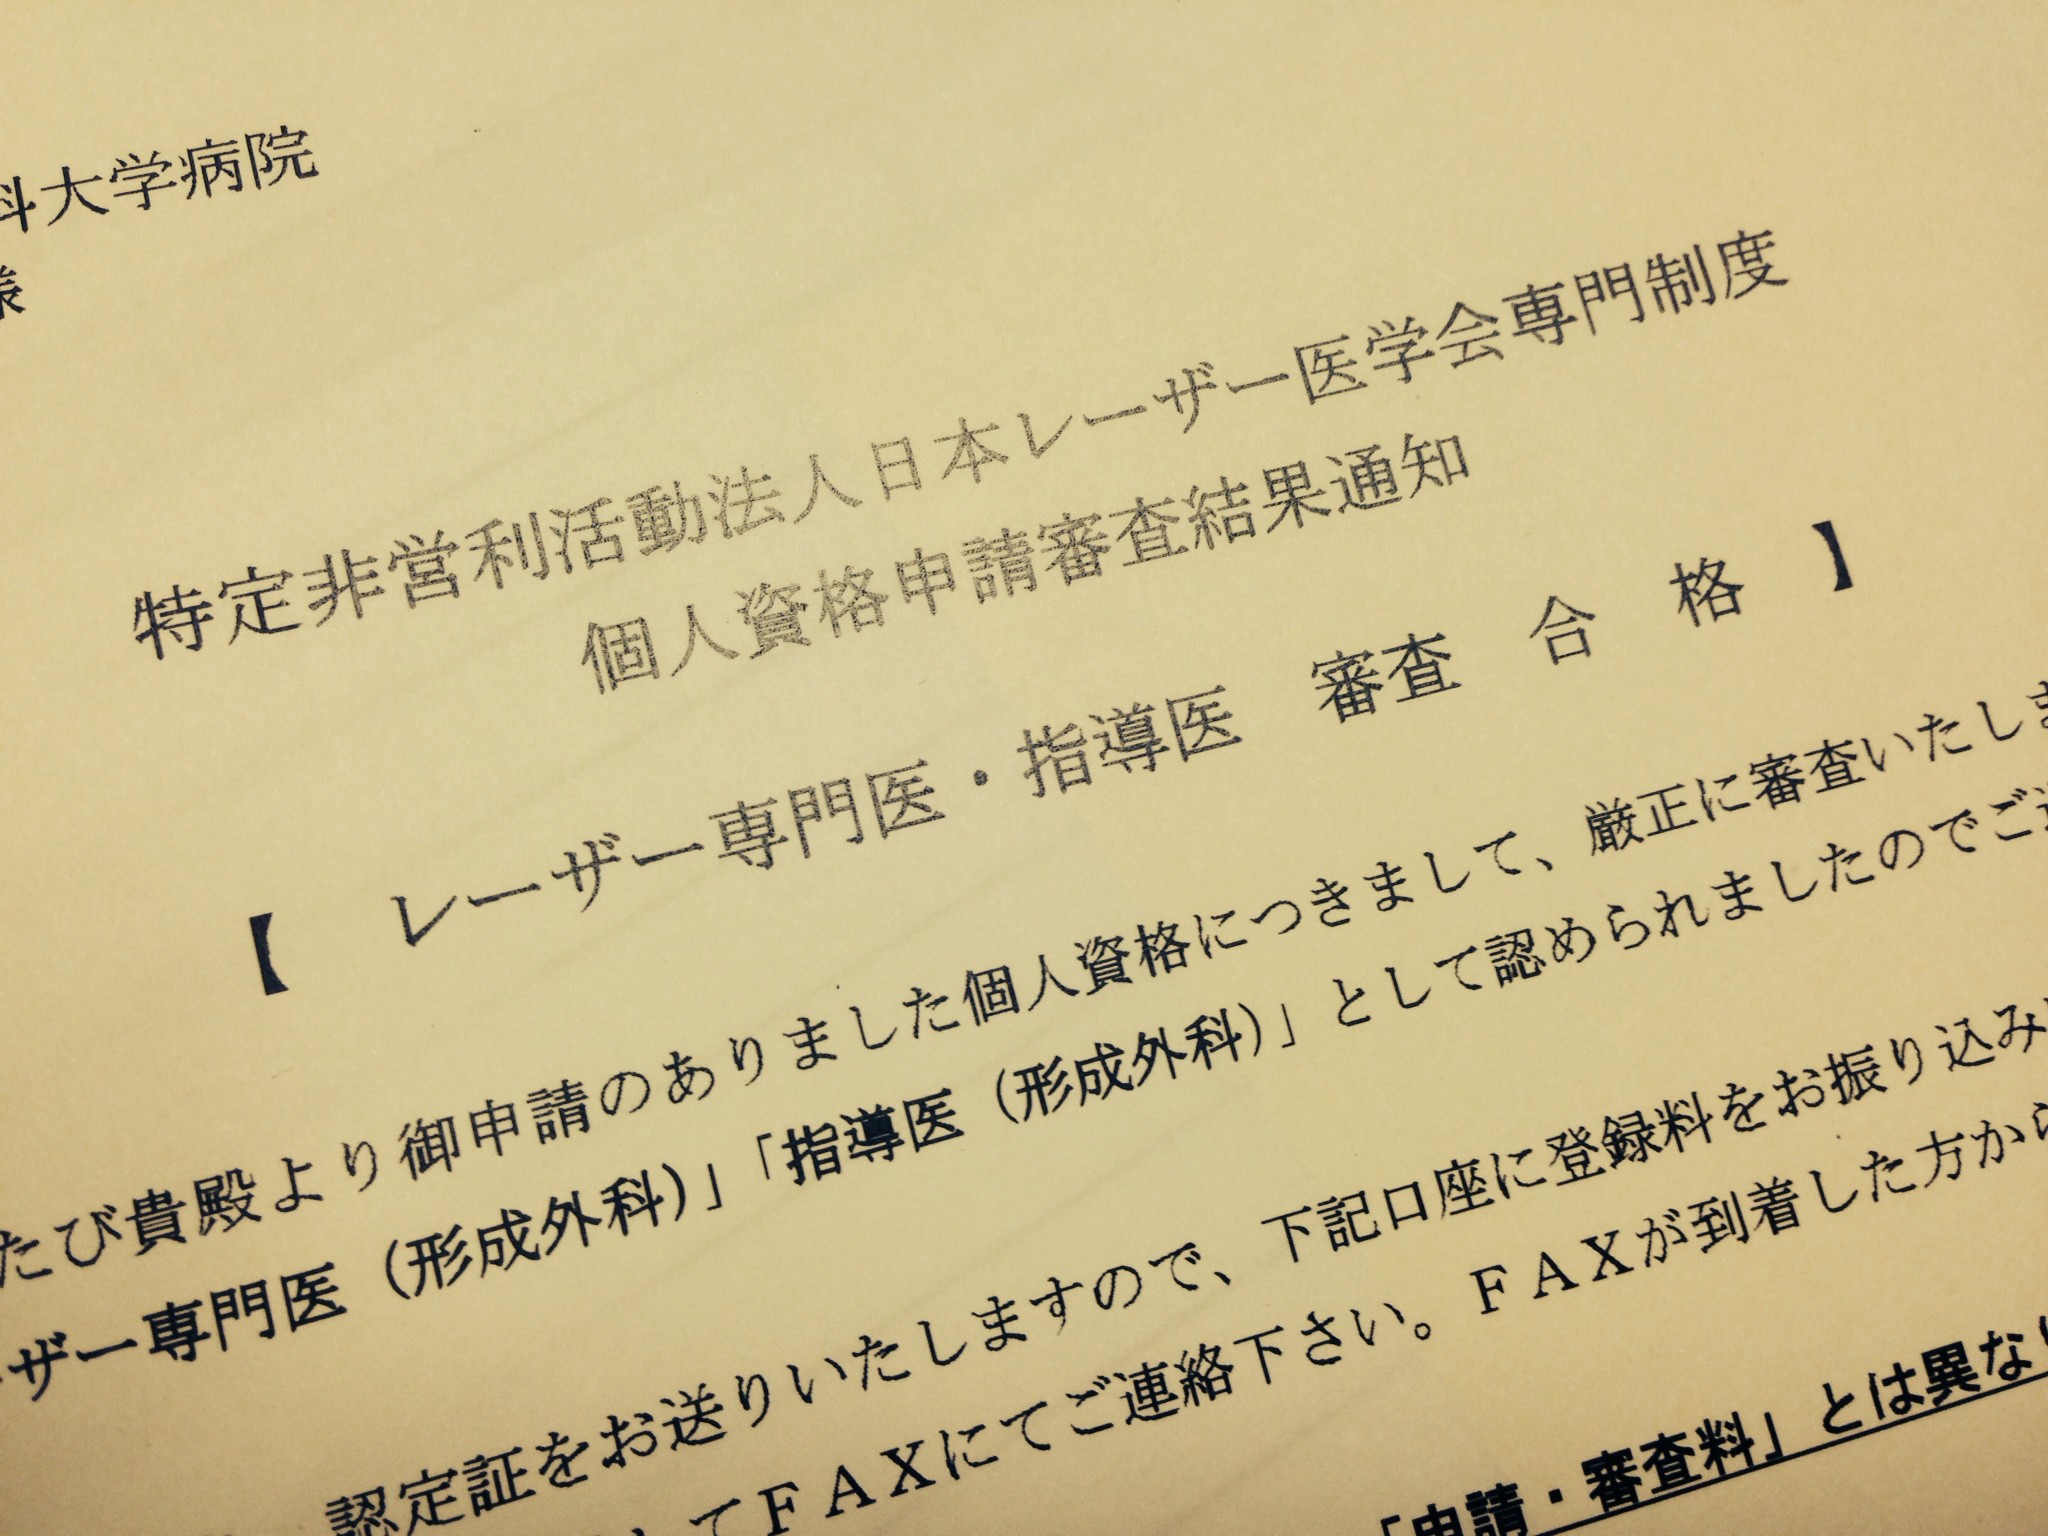 科大学病院
様
特定非営利活動法人日本レーザー医学会専門制度
個人資格申請審査結果通知
【　レーザー専門医・指導医　審査　合　格　】
たび貴殿より御申請のありました個人資格につきまして、厳正に審査いたしま
ザー専門医（形成外科）」「指導医（形成外科）」として認められましたのでご
認定証をお送りいたしますので、下記口座に登録料をお振り込み
してＦＡＸにてご連絡下さい。ＦＡＸが到着した方から
「申請・審査料」とは異なり